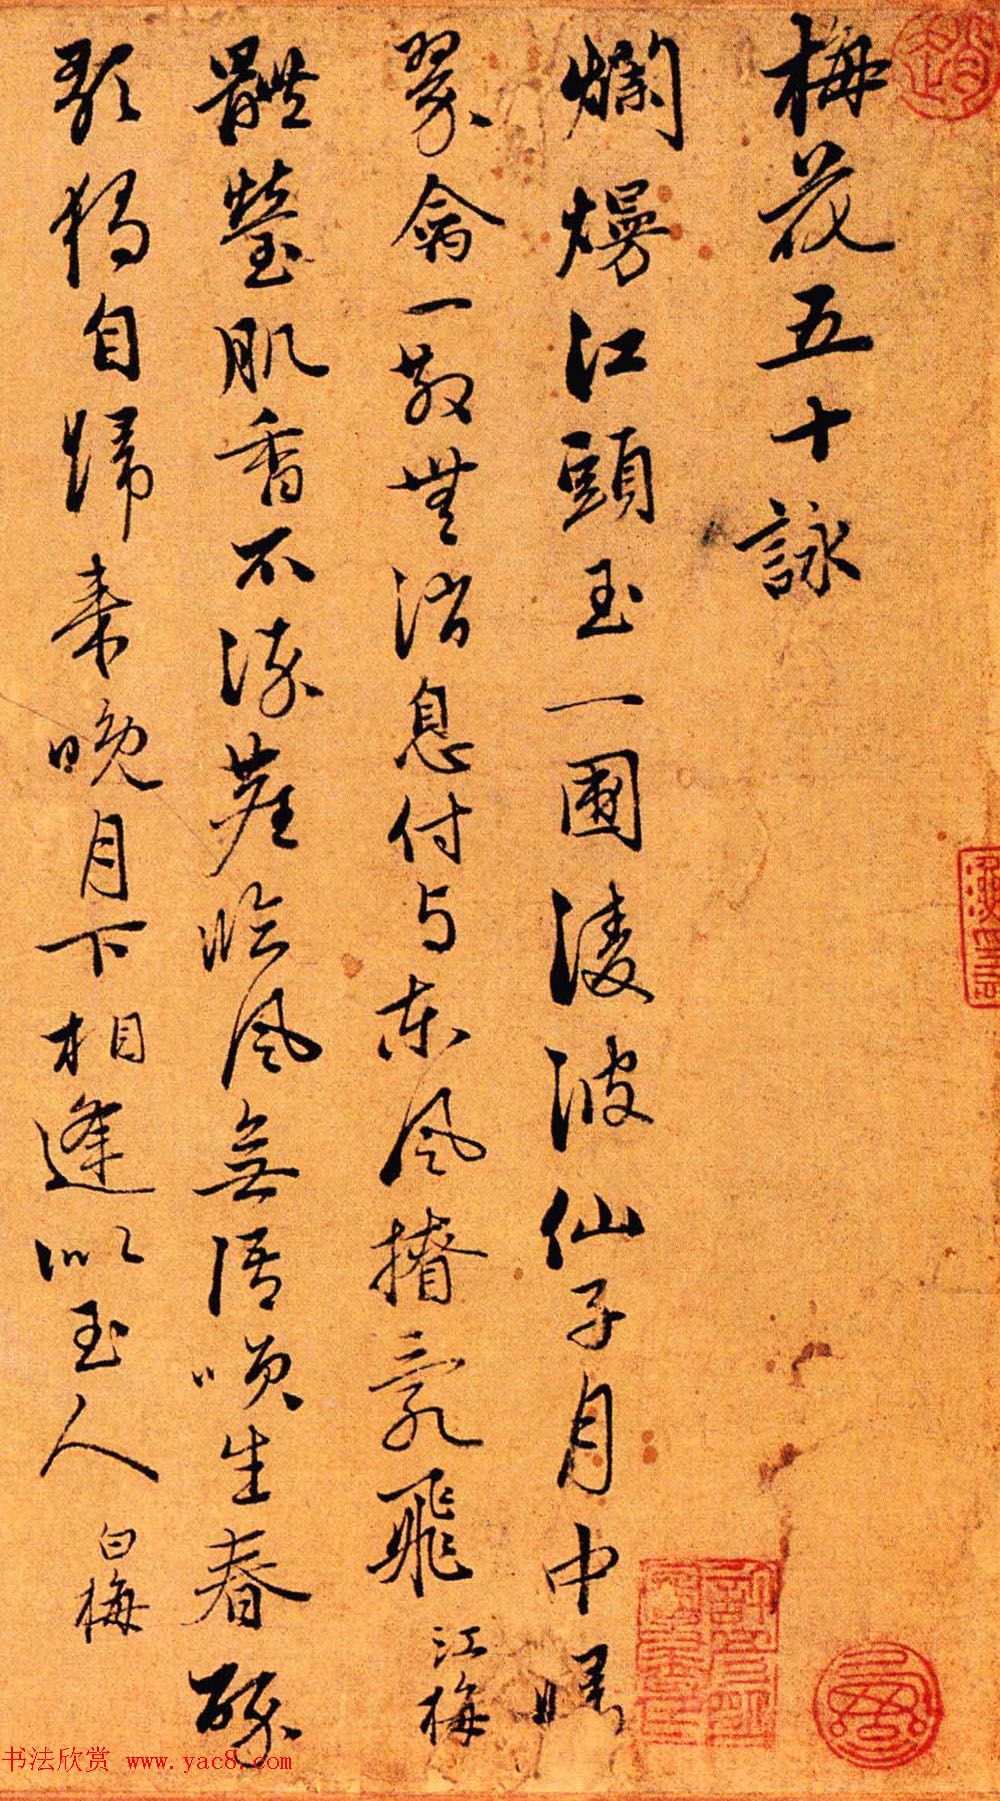 梅花五十詠
爛熳江頭玉一圍凌波仙子月中歸
翠禽一散無消息付与東風撩亂飛 江梅
體瑩肌香不染塵臨風無語咲生春醉
歌獨自歸来晚月下相逢似玉人 白梅
书法欣赏 www.yac8.com